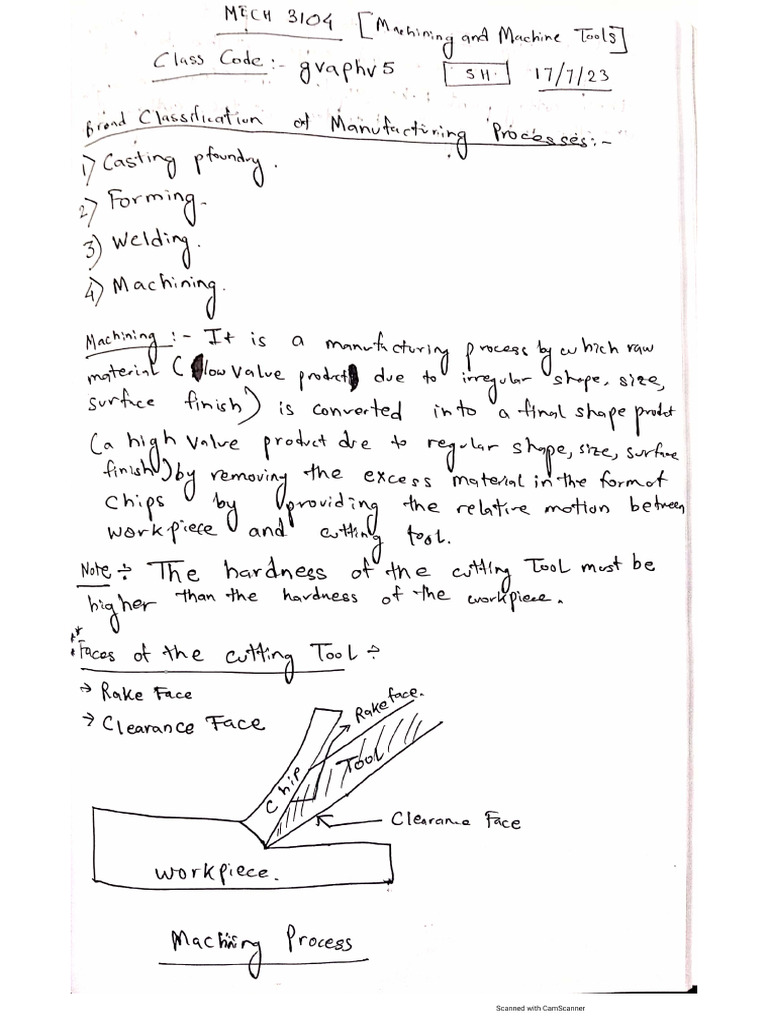 MECH 3104 [Machining and Machine Tools]
Class Code:- gvaphv5 SH 17/7/23
Broad Classification of Manufacturing Processes:-
1) Casting pfoundry.
2) Forming.
3) Welding.
4) Machining.
Machining :- It is a manufacturing process by which raw
material (low value product due to irregular shape, size,
surface finish) is converted into a final shape product
(a high value product due to regular shape, size, surface
finish) by removing the excess material in the form of
chips by providing the relative motion between
workpiece and cutting tool.
Note ÷ The hardness of the cutting Tool must be
higher than the hardness of the workpiece.
** Faces of the cutting Tool ÷
→ Rake Face
→ Clearance Face
Rake face.
Chip
Tool
Clearance Face
Workpiece.
Machining Process
Scanned with CamScanner